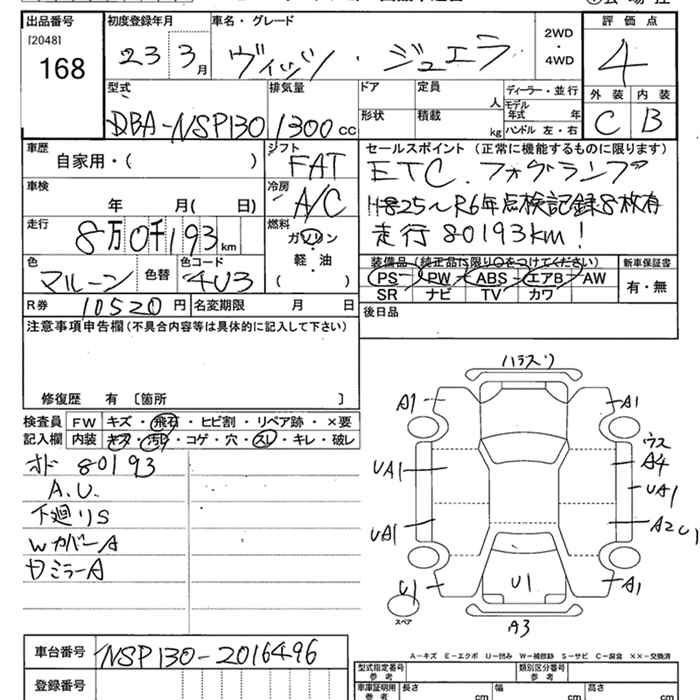 出品番号 初度登録年月 車名・グレード 2WD・4WD 評価点
[2048]
168
23 3月 ヴィッツ・ジュエラ 4
型式 排気量 ドア 定員 人 ディーラー・並行 外装 内装
モデル年式 年
DBA-NSP130 1300cc 形状 積載 kg ハンドル 左・右 C B
車歴 シフト セールスポイント (正常に機能するものに限ります)
自家用・( ) FAT ETC.フォグランプ
車検 冷房
年 月( 日) A/C H825~R6年点検記録8枚有
走行 燃料
8万0千193km ガソリン・軽・油 ( ) 走行80193km!
色 色替 色コード 装備品(純正品TS限り○をつけてください) 新車保証書
マルーン 4U3 PS PW ABS エアB AW 有・無
SR ナビ TV カワ
R券 10520円 名変期限 月 日 後日品
注意事項申告欄 (不具合内容等は具体的に記入して下さい)
修復歴 有 〔箇所 〕
検査員 FW キズ・飛石・ヒビ割・リペア跡・×要
記入欄 内装 キズ・汚れ・コゲ・穴・スレ・キレ・破レ
オド 80193
A.U.
下廻りS
WカバーA
サミラーA
A1 A1
ウス
UA1 A4
UA1
UA1 A2U1
U1 U1 A1
スペア
A3
A-キズ E-エクボ U-凹み W-補修跡 S-サビ C-腐食 XX-交換済
車台番号 NSP130-2016496
型式指定番号 参考 類別区分番号 参考
登録番号 車庫証明用 参考 長さ cm 幅 cm 高さ cm